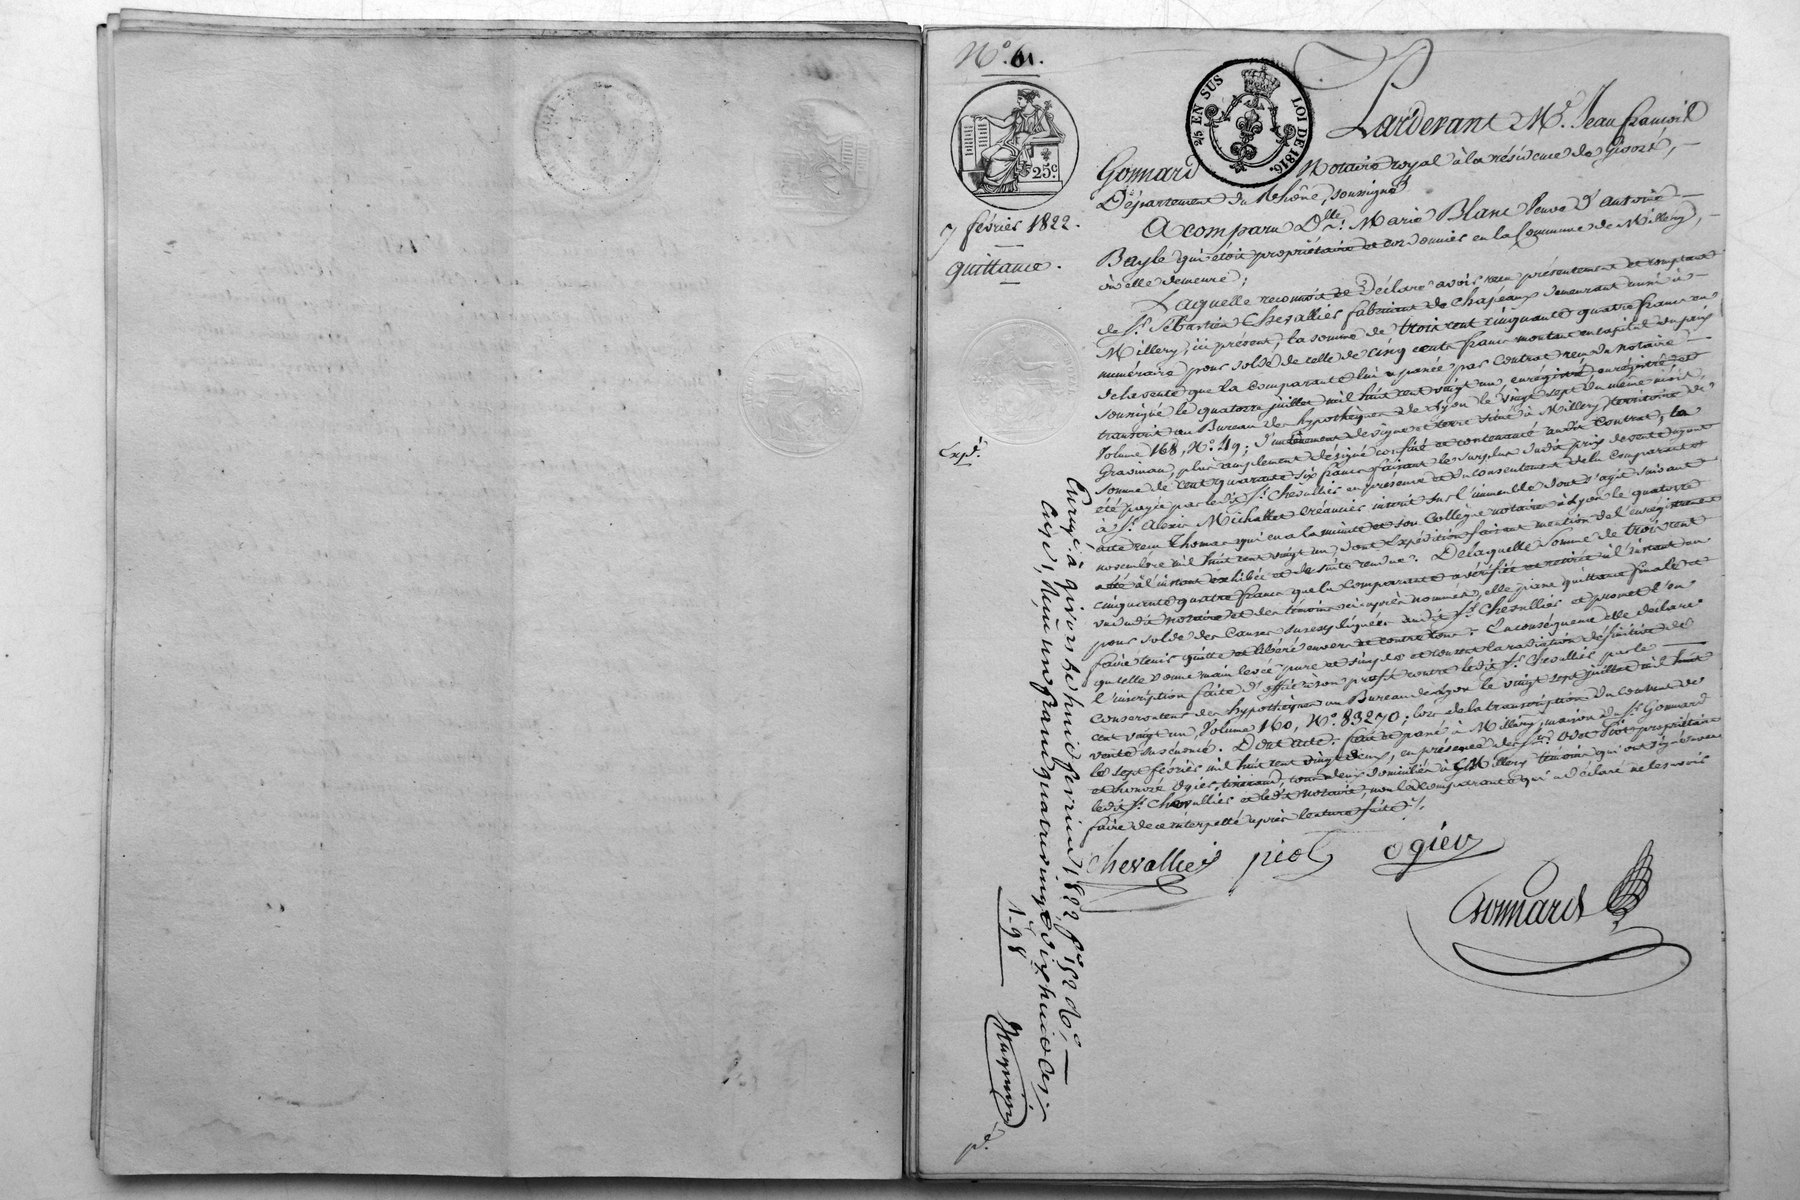 N.º 61.
2/5 EN SUS LOI DE 1816.
25.c
7 février 1822.
quittance.
Exp.é
Pardevant M.e Jean françois
Gonnard Notaire royal à la résidence de Givors,
Département du Rhône, soussigné
A comparu D.lle Marie Blanc Veuve d'antoine
Bayle qui étoit propriétaire et cordonnier en la Commune de Millery,
où elle demeure;
Laquelle reconnoit et déclare avoir reçu présentement et comptant
de S.r Sébastien Chevallier fabricant de chapeaux demeurant aussi à
Millery, ici présent, la somme de trois cent cinquante quatre francs en
numéraire pour solde de celle de cinq cents francs montant en capital du prix
de la vente que la comparante lui a passée par contrat reçu du notaire
soussigné le quatorze juillet mil huit cent vingt un, enrégistré
transcrit au Bureau des hypothèques de Lyon le vingt sept du même mois,
Volume 168, N.º 49; d'un ténement de vigne et terre situé à Millery territoire de
Gravinan, plus amplement désigné confiné et contenancé audit Contrat; la
somme de cent quarante six francs faisant le surplus dudit prix de vente ayant
été payée par ledit S.r Chevallier en présence et du consentement de la comparante
à S.r Alexis Michallet Créancier inscrit sur l'immeuble dont s'agit suivant
acte reçu Thomas qui en a la minute et son Collègue notaires à Lyon le quatorze
novembre mil huit cent vingt un, dont Expédition faisant mention de l'enrégistrement
a été à l'instant exhibée et de suite rendue. De laquelle somme de trois cent
cinquante quatre francs que la Comparante a vérifiée et retirée à l'instant au
vu dudit notaire et des témoins ci-après nommés, elle passe quittance finale et
pour solde des Causes susexpliquées audit S.r Chevallier et promet l'en
faire tenir quitte et libéré envers et contre tous. En conséquence elle déclare
qu'elle donne main levée pure et simple et consent la radiation définitive de
l'inscription faite d'office à son profit contre ledit S.r Chevallier par le
Conservateur des hypothèques au Bureau de Lyon le vingt sept juillet mil huit
cent vingt un, Volume 160, N.º 83270, lors de la transcription du Contrat de
vente susénoncé. Dont acte. fait et passé à Millery, maison du S.r Gonnard
les sept février mil huit cent vingt deux, en présence des S.rs Piot propriétaire
et honoré Ogier, tisserand, tous deux domiciliés à Millery témoins qui ont signé avec
ledit S.r Chevallier et ledit notaire, non la comparante qui a déclaré ne le savoir
faire de ce interpellé après lecture faite ./.
Chevallier piot ogier
Gonnard
Enreg.é à Givors le huit février 1822, f.º 152 c.e
Reçu un franc quatre vingt dix huit c.es
1-98